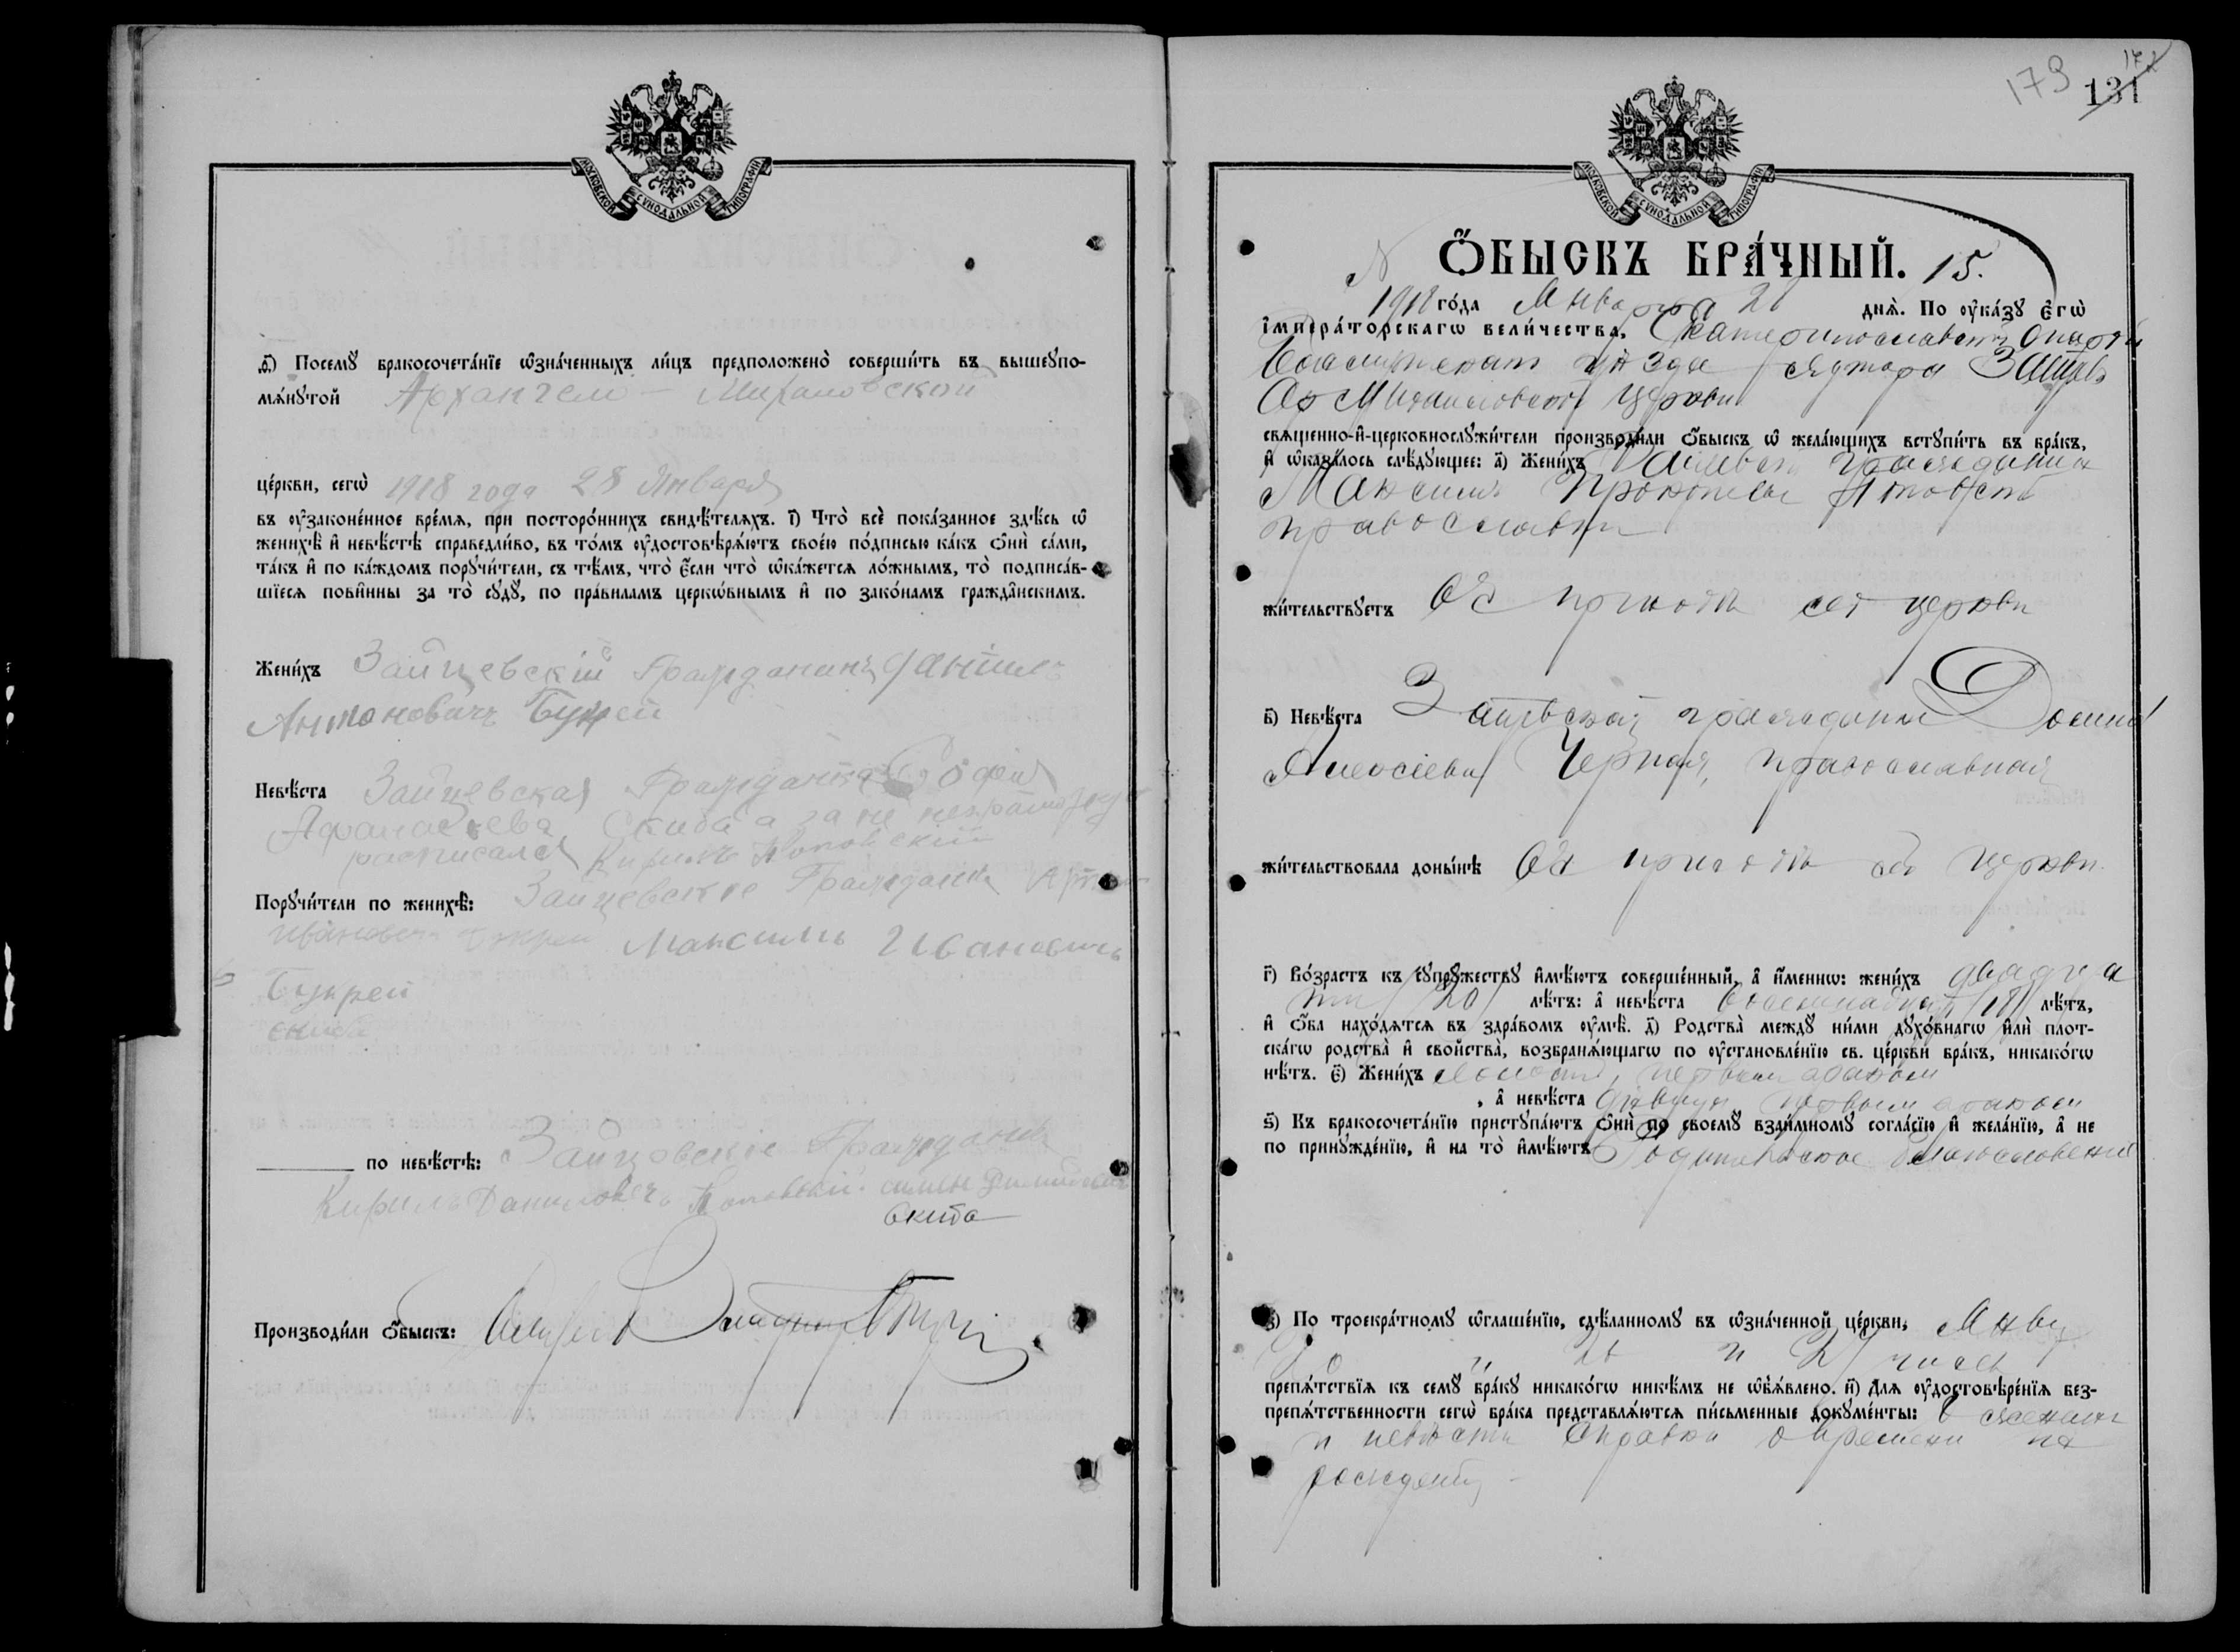 МОСКОВСКОЙ СѴНОДАЛЬНОЙ ТИПОГРАФІИ
ѳ҃) Посемꙋ̀ бракосочета́нїе ѡ҆зна́ченныхъ ли́цъ предположено̀ соверши́ть въ вышеꙋпо-
мѧ́нꙋтой Архангело - Михайловской
це́ркви, сегѡ̀ 1918 года 28 Января
въ ᲂу҆законе́нное вре́мѧ, при посторо́ннихъ свидѣ́телѧхъ. і҃) Что̀ всѐ пока́занное здѣ́сь ѡ҆
женихѣ̀ и҆ невѣ́стѣ справедли́во, въ то́мъ ᲂу҆достовѣрѧ́ютъ свое́ю по́дписью ка́къ ѻ҆нѝ са́ми,
та́къ и҆ по ка́ждомъ порꙋчи́тели, съ тѣ́мъ, что̀ є҆́сли что̀ ѡ҆ка́жетсѧ ло́жнымъ, то̀ подписа́в-
шїесѧ пови́нны за то̀ сꙋдꙋ̀, по пра́виламъ церкѡ́внымъ и҆ по зако́намъ гражда̂нскимъ.
Жени́хъ Зайцевскій Гражданинъ Даніилъ
Антоновичъ Букрей
Невѣ́ста Зайцевская Гражданка Софія
Афанасьева Скиба а за не
расписался Кирилъ
Порꙋчи́тели по женихѣ̀: Зайцевские Граждани
Ивановичъ Букрей Максимъ Ивановичъ
Букрей
по невѣ́стѣ: Зайцовскіе Граждани
Кирилъ Даниловичъ
Скиба
Производи́ли ѻ҆́быскъ:
179 172
131
МОСКОВСКОЙ СѴНОДАЛЬНОЙ ТИПОГРАФІИ
N Ѻ҆́БЫСКЪ БРА́ЧНЫЙ. 15.
1918 го́да Января дня̀. По ᲂу҆ка́зꙋ є҆гѡ̀
і҆мпера́торскагѡ вели́чества, Екатеринославской Епархіи
уѣзда хутора Зайцев
Ар Михайловской церкви
свѧще́нно-и҆-церковнослꙋжи́тели производи́ли ѻ҆́быскъ ѡ҆ жела́ющихъ встꙋпи́ть въ бра́къ,
и҆ ѡ҆каза́лось слѣ́дꙋющее: а҃) Жени́хъ гражданинъ
Максимъ Прокопіевъ
православный
жи́тельствꙋетъ Въ приходѣ сей церкви
в҃) Невѣ́ста гражданка Домна
Алексіева Черная, православная
жи́тельствовала доны́нѣ Въ приходѣ сей церкви
г҃) Во́зрастъ къ сꙋпрꙋ́жествꙋ и҆мѣ́ютъ соверше́нный, а҆ и҆́меннѡ: жени́хъ двадца
ти /20/ лѣ́тъ: а҆ невѣ́ста восемнадцати /18/ лѣ́тъ,
и҆ ѻ҆́ба нахо́дѧтсѧ въ здра́вомъ ᲂу҆мѣ̀. д҃) Родства̀ междꙋ ни́ми дꙋхо́внагѡ и҆лѝ плот-
ска́гѡ родства̀ и҆ сво́йства̀, возбранѧ́ющагѡ по ᲂу҆становле́нїю св. це́ркви бра́къ, никако́гѡ
нѣ́тъ. є҃) Жени́хъ холостъ, первым браком
, а҆ невѣ́ста дѣвица, первым браком
ѕ҃) Къ бракосочета́нїю пристꙋпа́ютъ ѻ҆нѝ по своемꙋ̀ взаи́мномꙋ согла́сїю и҆ жела́нїю, а҆ не
по принꙋжде́нїю, и҆ на то̀ и҆мѣ́ютъ Родительское благословеніе
з҃) По троекра́тномꙋ ѡ҆глаше́нїю, сдѣ́ланномꙋ въ ѡ҆зна́ченной це́ркви,
препѧ́тствїѧ къ семꙋ̀ бра́кꙋ никако́гѡ никѣ́мъ не ѡ҆б̾ѧ́влено. и҃) Длѧ ᲂу҆достовѣре́нїѧ без-
препѧ́тственности сегѡ̀ бра́ка представлѧ́ютсѧ пи́сьменные докꙋме́нты: о женихѣ
и невѣсты справка о времени их
рожденія